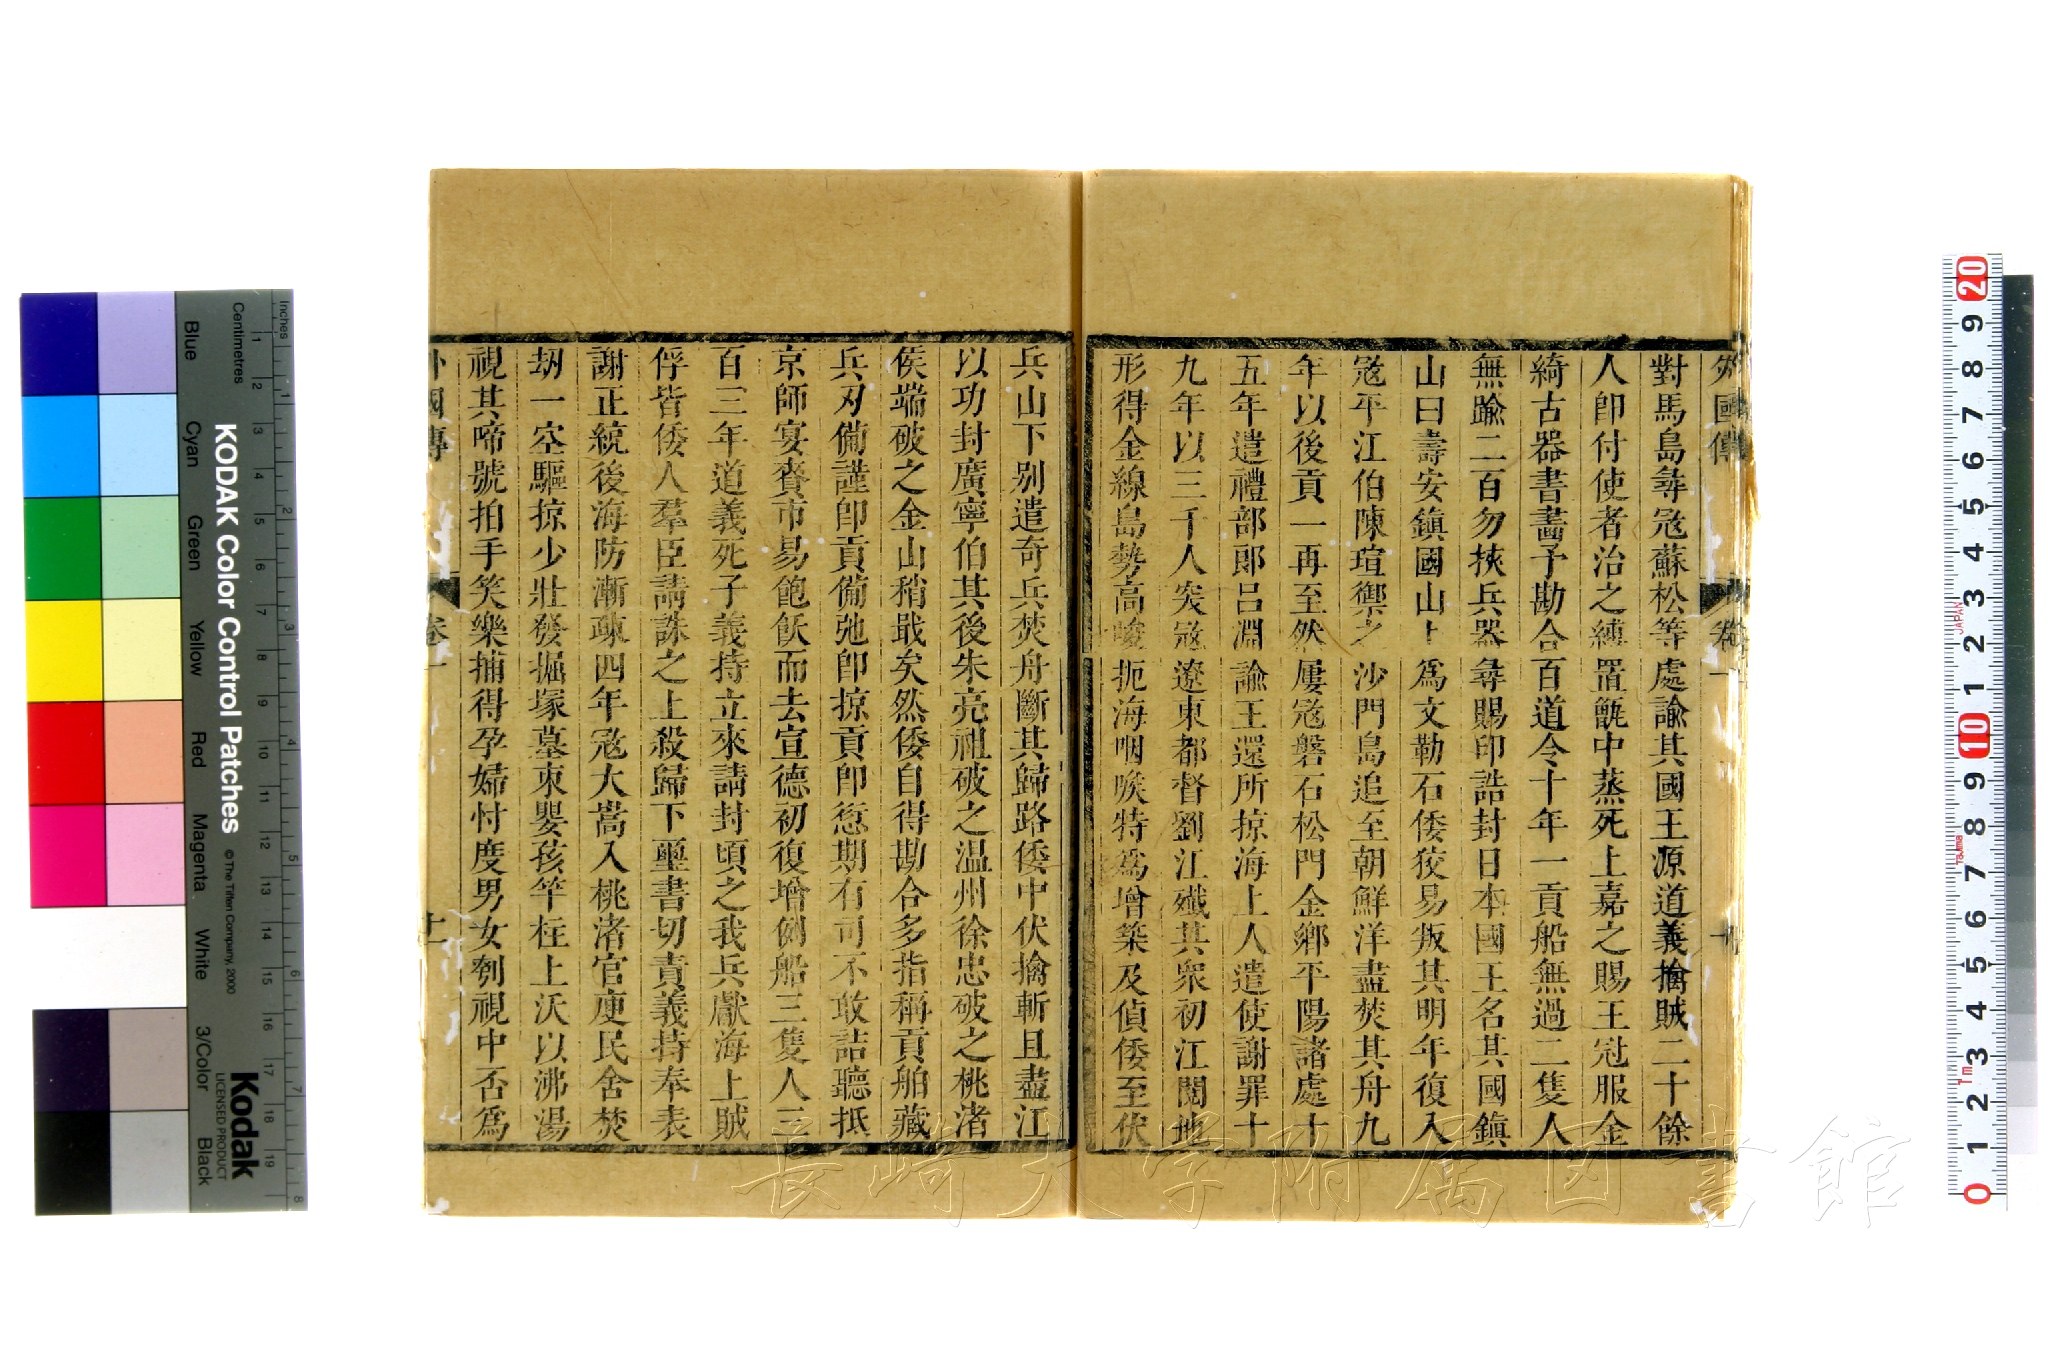 外國傳 卷一 十
對馬島尋冦蘇松等處諭其國王源道義擒賊二十餘
人卽付使者治之縛置甑中蒸死上嘉之賜王冠服金
綺古器書畵予勘合百道令十年一貢船無過二隻人
無踰二百勿挾兵器尋賜印誥封日本國王名其國鎮
山曰壽安鎮國山上爲文勒石倭狡易叛其明年復入
冦平江伯陳瑄禦之沙門島追至朝鮮洋盡焚其舟九
年以後貢一再至然屢冦磐石松門金鄉平陽諸處十
五年遣禮部郞呂淵諭王還所掠海上人遣使謝罪十
九年以三千人突冦遼東都督劉江殲其衆初江閱地
形得金線島勢高峻扼海咽喉特爲增築及偵倭至伏
兵山下别遣奇兵焚舟斷其歸路倭中伏擒斬且盡江
以功封廣寧伯其後朱亮祖破之温州徐忠破之桃渚
侯端破之金山稍戢矣然倭自得勘合多指稱貢舶藏
兵刃備謹卽貢備弛卽掠貢卽愆期有司不敢詰聽抵
京師宴賚市易飽飫而去宣德初復增例船三隻人三
百三年道義死子義持立來請封頃之我兵獻海上賊
俘皆倭人羣臣請誅之上殺歸下璽書切責義持奉表
謝正統後海防漸疎四年冦大嵩入桃渚官庾民舍焚
刼一空驅掠少壯發掘塚墓束嬰孩竿柱上沃以沸湯
視其啼號拍手笑樂捕得孕婦忖度男女刳視中否爲
外國傳 卷一 十一
長崎大学附属図書館
KODAK Color Control Patches
© The Tiffen Company, 2000
Kodak
LICENSED PRODUCT
Inches 1 2 3 4 5 6 7 8
Centimetres 1 2 3 4 5 6 7 8 9 10 11 12 13 14 15 16 17 18 19
Blue Cyan Green Yellow Red Magenta White 3/Color Black
20 9 8 7 6 5 4 3 2 1 10 9 8 7 6 5 4 3 2 1 0
JAPAN Tajima 1m